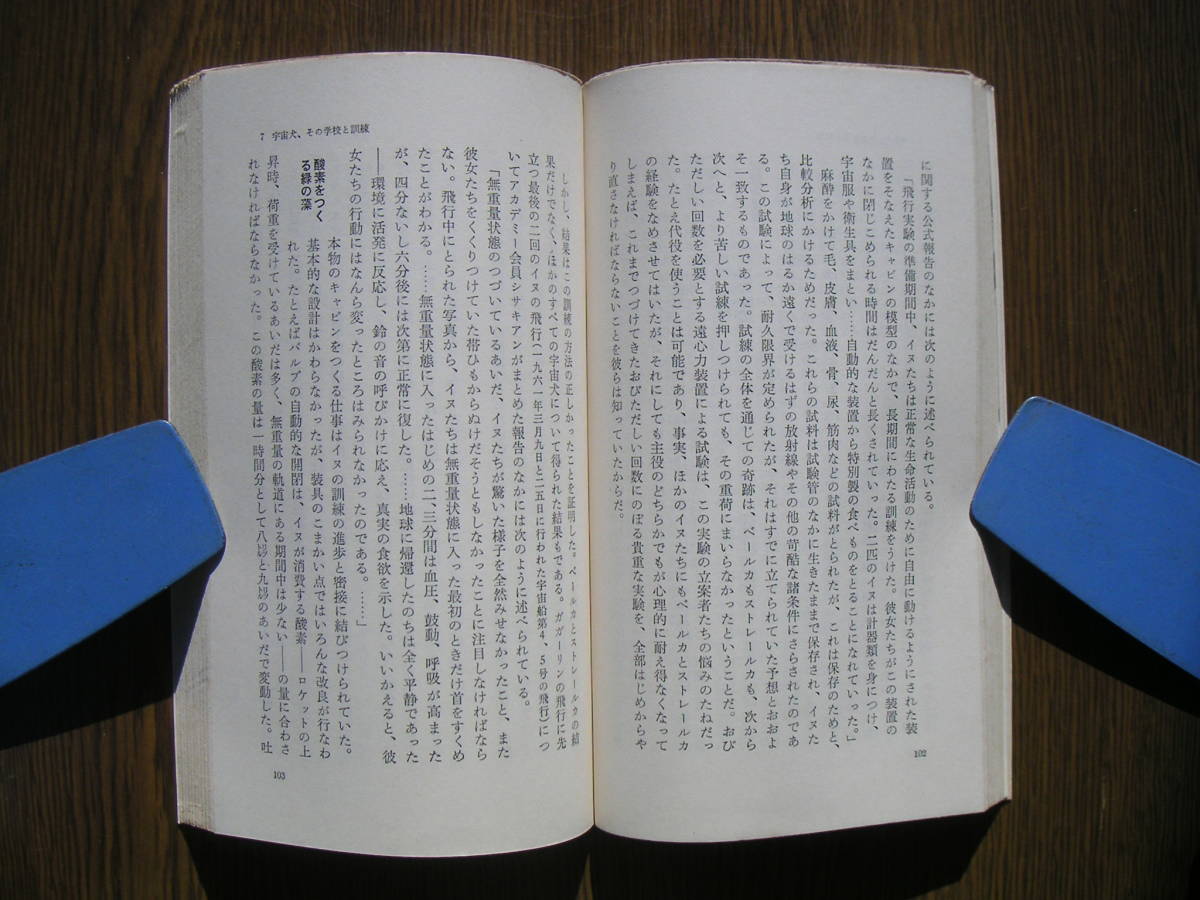 に関する公式報告のなかには次のように述べられている。
「飛行実験の準備期間中、イヌたちは正常な生命活動のために自由に動けるようにされた装
置をそなえたキャビンの模型のなかで、長期間にわたる訓練をうけた。彼女たちがこの装置の
なかに閉じこめられる時間はだんだんと長くされていった。二匹のイヌは計器類を身につけ、
宇宙服や衛生具をまとい……自動的な装置から特別製の食べものをとることになれていった。」
麻酔をかけて毛、皮膚、血液、骨、尿、筋肉などの試料がとられたが、これは保存のためと、
比較分析にかけるためだった。これらの試料は試験管のなかに生きたままで保存され、イヌた
ち自身が地球のはるか遠くで受けるはずの放射線やその他の苛酷な諸条件にさらされたのであ
る。この試験によって、耐久限界が定められたが、それはすでに立てられていた予想とおおよ
そ一致するものであった。試練の全体を通じての奇跡は、ベールカもストレールカも、次から
次へと、より苦しい試練を押しつけられても、その重荷にまいらなかったということだ。おび
ただしい回数を必要とする遠心力装置による試験は、この実験の立案者たちの悩みのたねだっ
た。たとえ代役を使うことは可能であり、事実、ほかのイヌたちにもベールカとストレールカ
の経験をなめさせてはいたが、それにしても主役のどちらかでもが心理的に耐え得なくなって
しまえば、これまでつづけてきたおびただしい回数にのぼる貴重な実験を、全部はじめからや
り直さなければならないことを彼らは知っていたからだ。
102
7 宇宙犬、その学校と訓練
しかし、結果はこの訓練の方法の正しかったことを証明した。ベールカとストレールカの結
果だけでなく、ほかのすべての宇宙犬について得られた結果もである。ガガーリンの飛行に先
立つ最後の二回のイヌの飛行(一九六一年三月九日と二五日に行われた宇宙船第4、5号の飛行)につ
いてアカデミー会員シサキアンがまとめた報告のなかには次のように述べられている。
「無重量状態のつづいているあいだ、イヌたちが驚いた様子を全然みせなかったこと、また
彼女たちをくくりつけていた帯ひもからぬけだそうともしなかったことに注目しなければなら
ない。飛行中にとられた写真から、イヌたちは無重量状態に入った最初のときだけ首をすくめ
たことがわかる。……無重量状態に入ったはじめの二、三分間は血圧、鼓動、呼吸が高まった
が、四分ないし六分後には次第に正常に復した。……地球に帰還したのちは全く平静であった
――環境に活発に反応し、鈴の音の呼びかけに応え、真実の食欲を示した。いいかえると、彼
女たちの行動にはなんら変ったところはみられなかったのである。……」
酸素をつく
る緑の藻
本物のキャビンをつくる仕事はイヌの訓練の進歩と密接に結びつけられていた。
基本的な設計はかわらなかったが、装具のこまかい点ではいろんな改良が行なわ
れた。たとえばバルブの自動的な開閉は、イヌが消費する酸素――ロケットの上
昇時、荷重を受けているあいだは多く、無重量の軌道にある期間中は少ない――の量に合わさ
れなければならなかった。この酸素の量は一時間分として八㍑と九㍑のあいだで変動した。吐
103